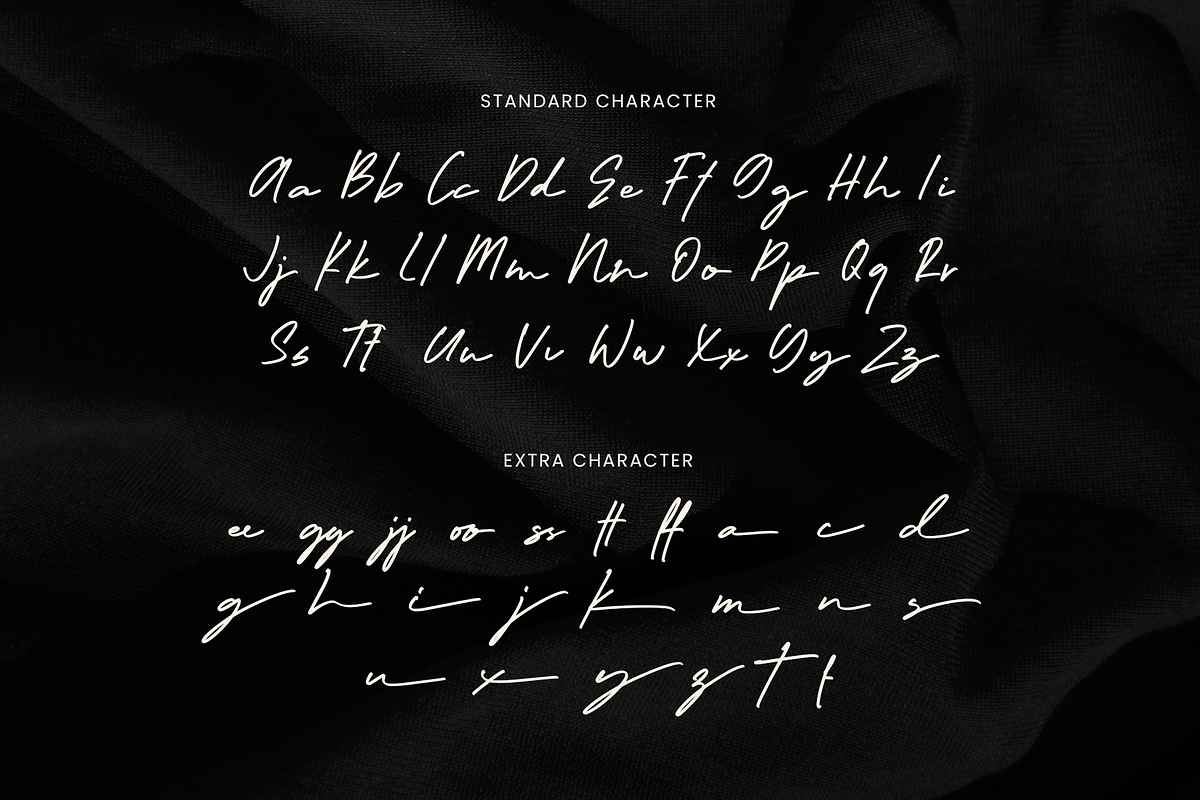 STANDARD CHARACTER
Aa Bb Cc Dd Ee Ff Gg Hh Ii
Jj Kk Ll Mm Nn Oo Pp Qq Rr
Ss Tt Uu Vv Ww Xx Yy Zz
EXTRA CHARACTER
ee gg jj oo ss tt ff a c d
g h i j k m n s
u x y z t t